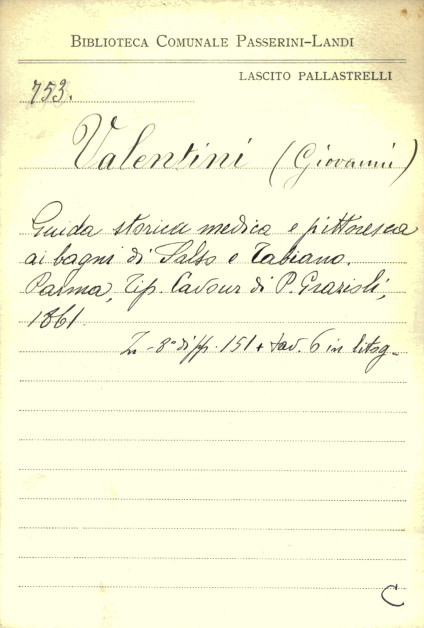 BIBLIOTECA COMUNALE PASSERINI-LANDI
LASCITO PALLASTRELLI
753.
Valentini (Giovanni)
Guida storica medica e pittoresca
ai bagni di Salso e Tabiano.
Parma, Tip. Cavour di P. Grazioli,
1861.
In-8° di pp. 151 + tav. 6 in litog-
C